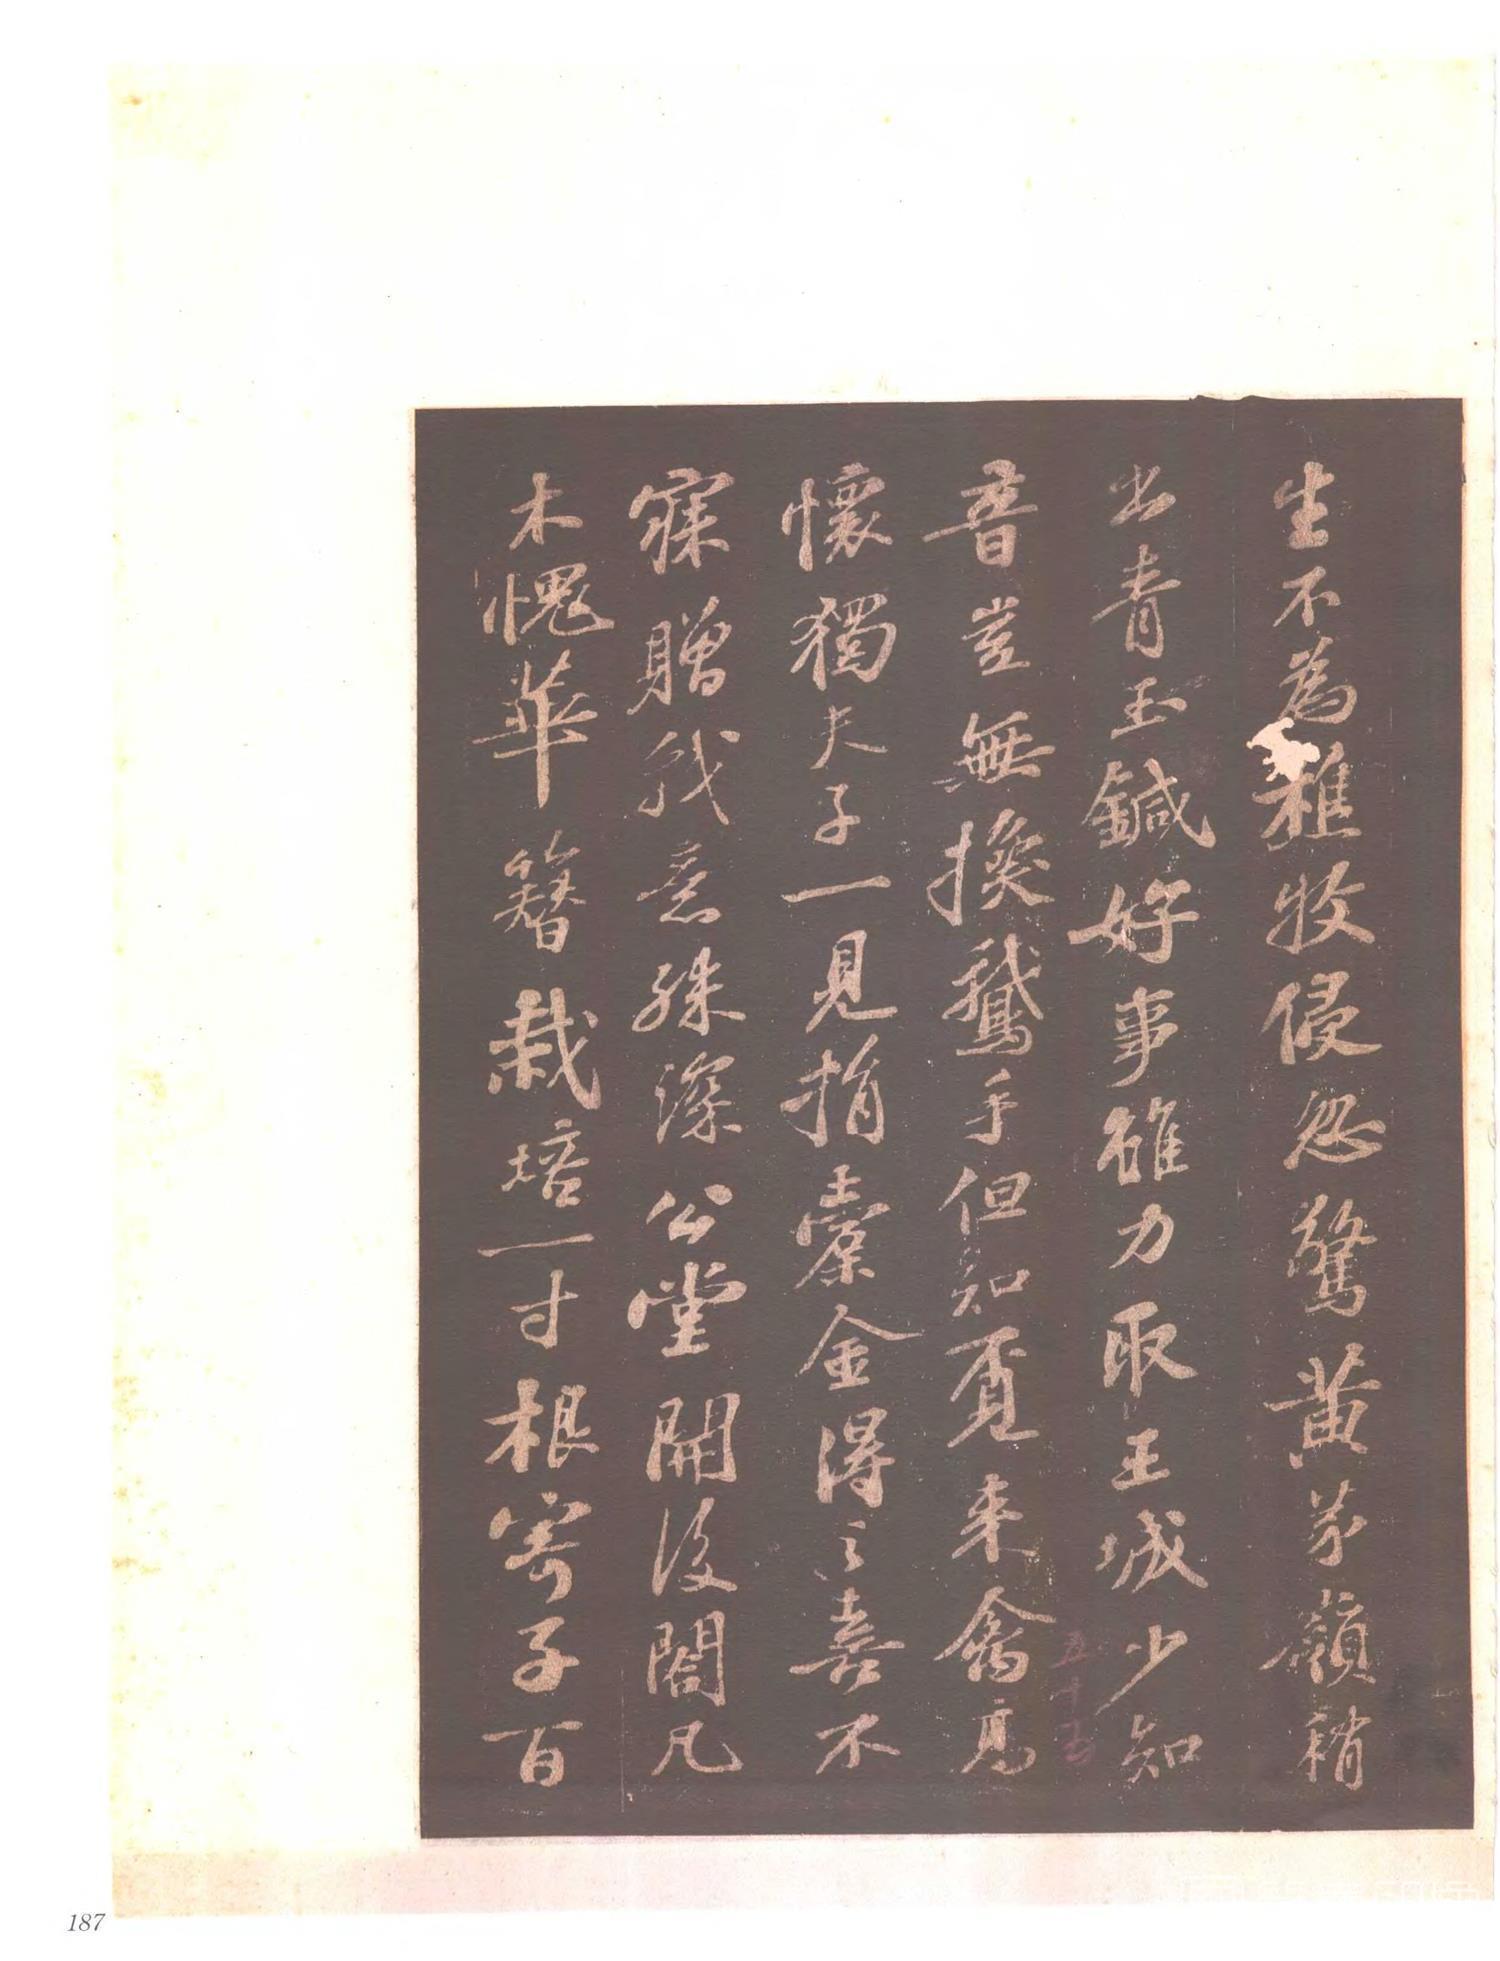 生不為樵牧侵忽驚黃茅嶺稍
出青玉鍼好事雖力取王城少知
音豈無換鵝手但知覓來禽高
懷獨夫子一見捐橐金得之喜不
寐贈我意殊深公堂開後閤凡
木愧華簪栽培一寸根寄子百
五十五
187